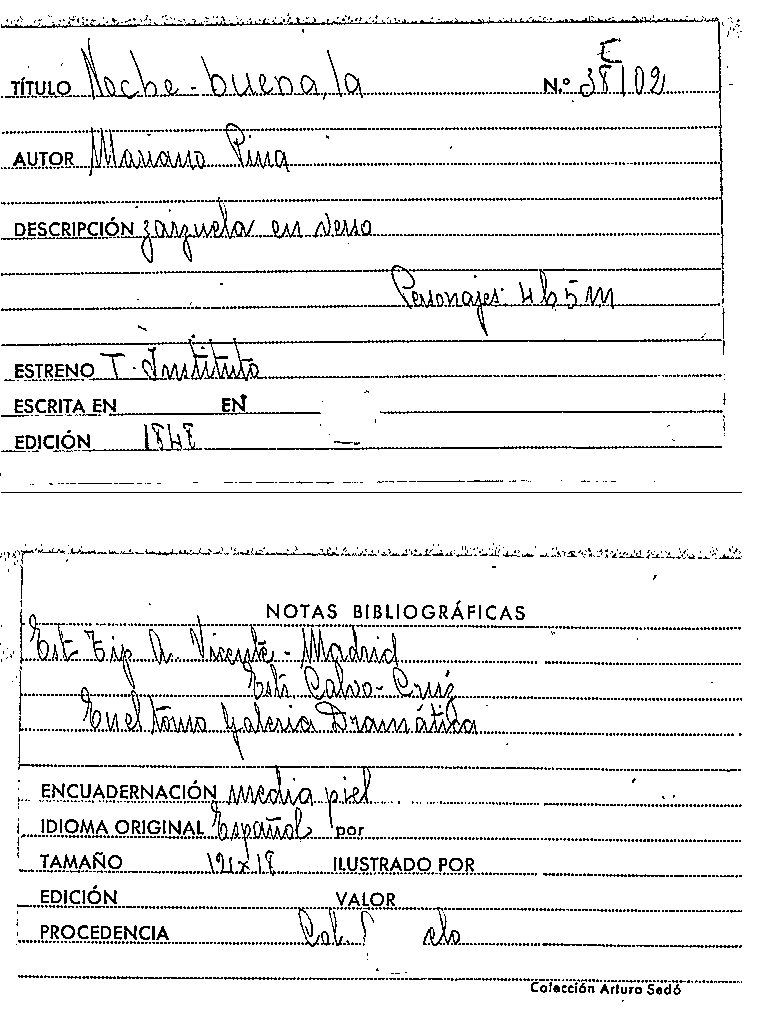 E
TÍTULO Noche-buena, la N.º 38102
AUTOR Mariano Pina
DESCRIPCIÓN zarzuela en verso
Personajes: 4 h 5 m
ESTRENO T. Instituto
ESCRITA EN EN
EDICIÓN 1848
NOTAS BIBLIOGRÁFICAS
Est Tip A. Vicente - Madrid
Calvo-Cruz
En el tomo Galeria Dramática
ENCUADERNACIÓN media piel
IDIOMA ORIGINAL Español por
TAMAÑO ILUSTRADO POR
EDICIÓN VALOR
PROCEDENCIA Col.
Colección Arturo Sedó